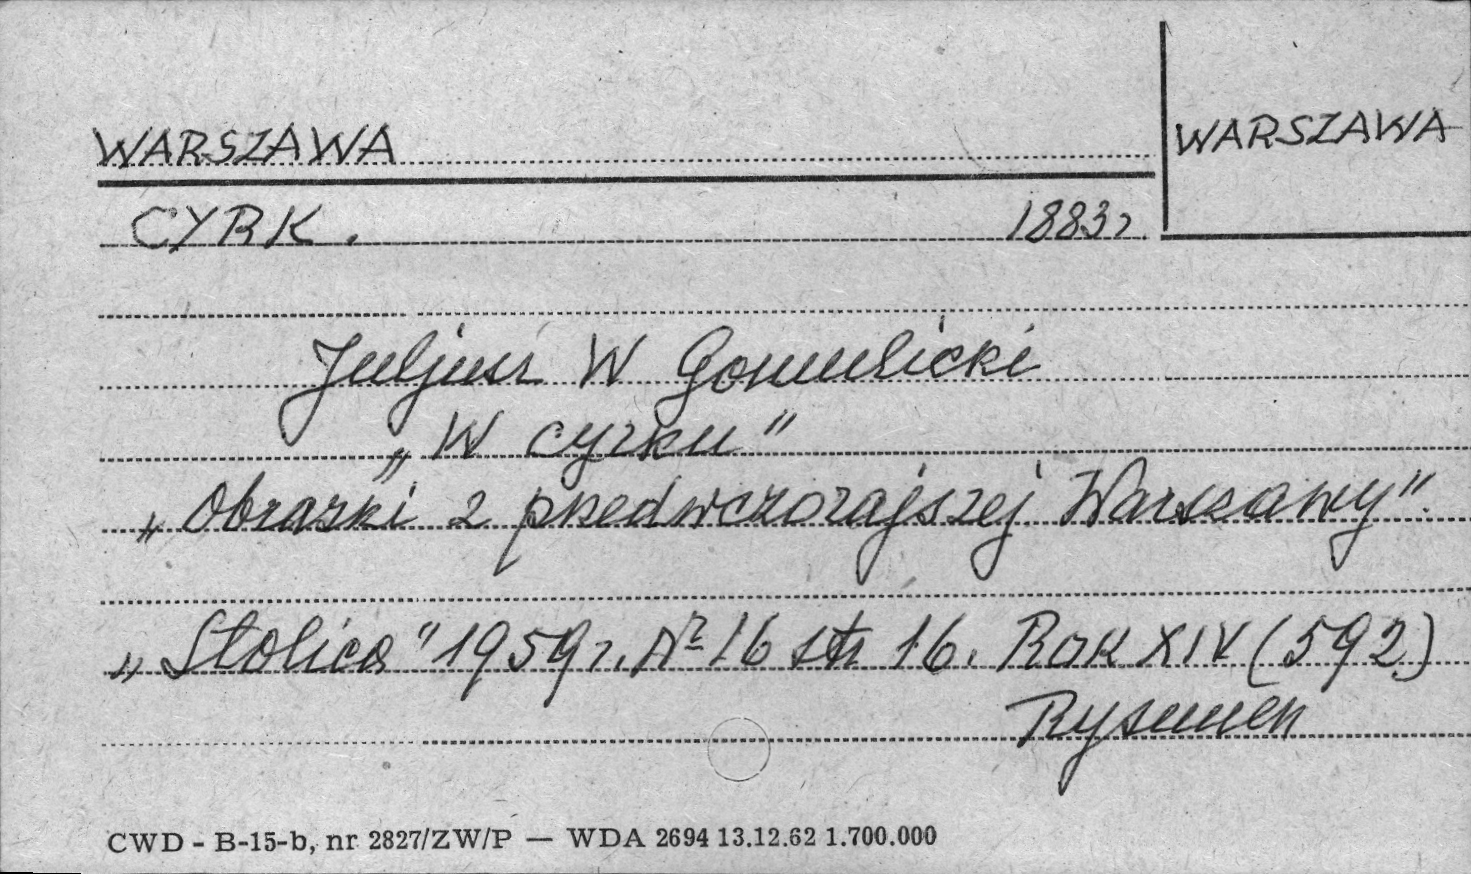 WARSZAWA
WARSZAWA
CYRK. 1883r
Juljusz W Gomulicki
„W cyrku"
„Obrazki z przedwczorajszej Warszawy".
„Stolica" 1959r. Nr 16 str 16. Rok XIV (592)
Rysunek
CWD - B-15-b, nr 2827/ZW/P — WDA 2694 13.12.62 1.700.000